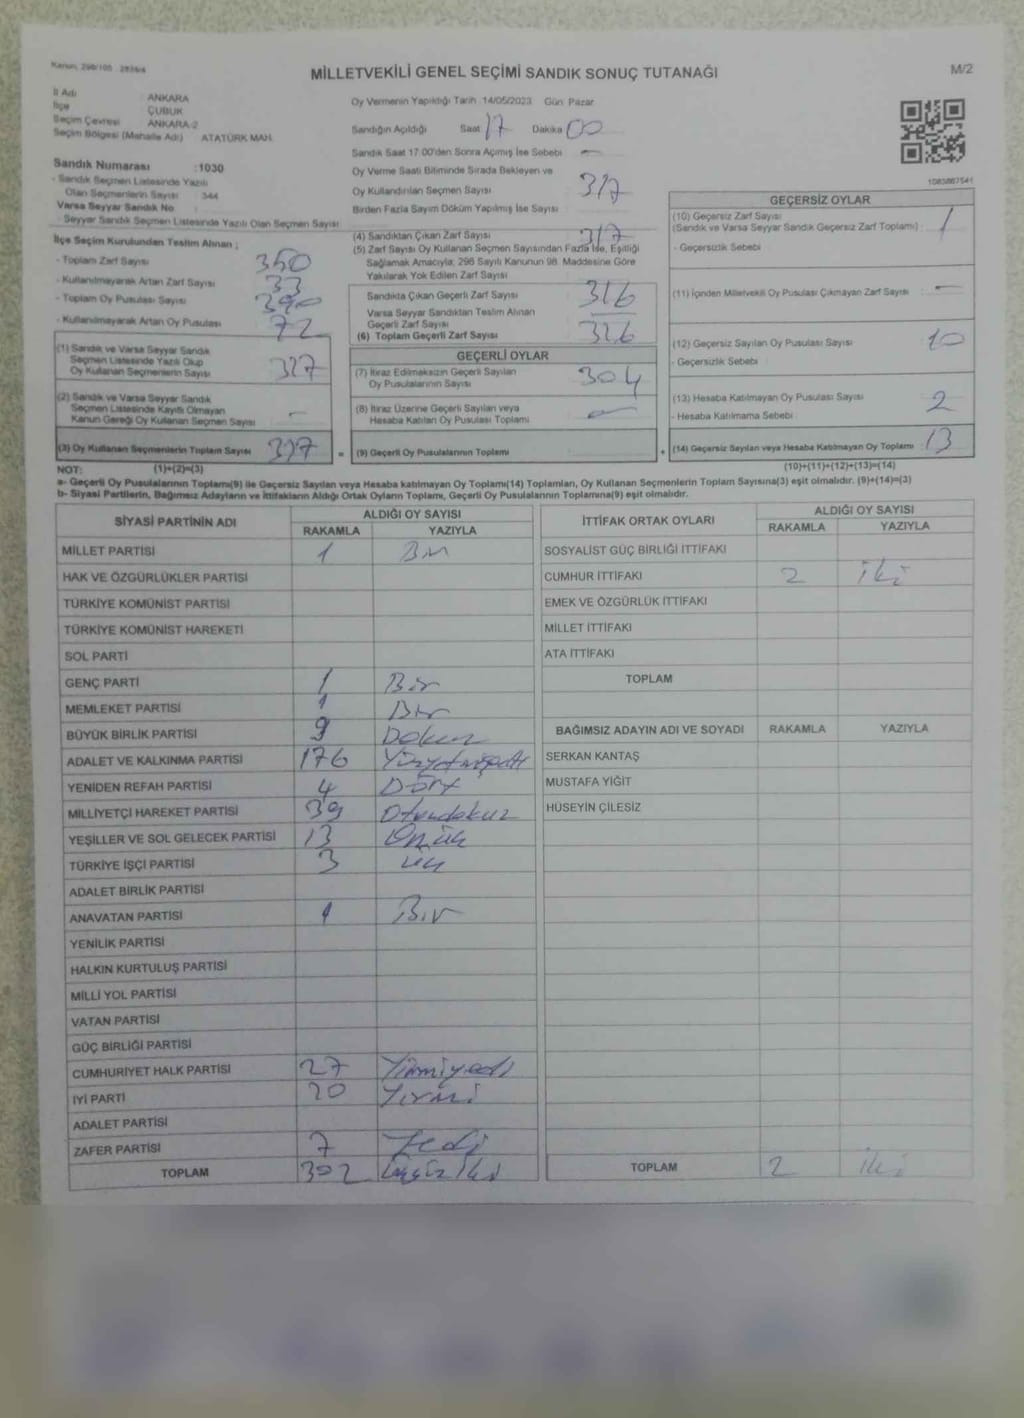 Kanun, 298/105 - 2839/4
MİLLETVEKİLİ GENEL SEÇİMİ SANDIK SONUÇ TUTANAĞI
M/2
İl Adı ANKARA
İlçe ÇUBUK
Seçim Çevresi ANKARA-2
Seçim Bölgesi (Mahalle Adı) ATATÜRK MAH.
Oy Vermenin Yapıldığı Tarih :14/05/2023 Gün: Pazar
Sandığın Açıldığı Saat 17 Dakika 00
Sandık Saat 17:00'den Sonra Açılmış İse Sebebi -
Sandık Numarası :1030
- Sandık Seçmen Listesinde Yazılı
Olan Seçmenlerin Sayısı : 344
Varsa Seyyar Sandık No :
- Seyyar Sandık Seçmen Listesinde Yazılı Olan Seçmen Sayısı
Oy Verme Saati Bitiminde Sırada Bekleyen ve
Oy Kullandırılan Seçmen Sayısı 317
Birden Fazla Sayım Döküm Yapılmış İse Sayısı
1083867541
İlçe Seçim Kurulundan Teslim Alınan ;
- Toplam Zarf Sayısı 350
- Kullanılmayarak Artan Zarf Sayısı 33
- Toplam Oy Pusulası Sayısı 390
- Kullanılmayarak Artan Oy Pusulası 72
(1) Sandık ve Varsa Seyyar Sandık
Seçmen Listesinde Yazılı Olup
Oy Kullanan Seçmenlerin Sayısı 317
(2) Sandık ve Varsa Seyyar Sandık
Seçmen Listesinde Kayıtlı Olmayan
Kanun Gereği Oy Kullanan Seçmen Sayısı -
(3) Oy Kullanan Seçmenlerin Toplam Sayısı 317
(4) Sandıktan Çıkan Zarf Sayısı 317
(5) Zarf Sayısı Oy Kullanan Seçmen Sayısından Fazla İse, Eşitliği
Sağlamak Amacıyla; 298 Sayılı Kanunun 98. Maddesine Göre
Yakılarak Yok Edilen Zarf Sayısı
Sandıkta Çıkan Geçerli Zarf Sayısı 316
Varsa Seyyar Sandıktan Teslim Alınan
Geçerli Zarf Sayısı
(6) Toplam Geçerli Zarf Sayısı 316
GEÇERLİ OYLAR
(7) İtiraz Edilmeksizin Geçerli Sayılan
Oy Pusulalarının Sayısı 304
(8) İtiraz Üzerine Geçerli Sayılan veya
Hesaba Katılan Oy Pusulası Toplamı -
= (9) Geçerli Oy Pusulalarının Toplamı +
GEÇERSİZ OYLAR
(10) Geçersiz Zarf Sayısı
(Sandık ve Varsa Seyyar Sandık Geçersiz Zarf Toplamı) 1
- Geçersizlik Sebebi
(11) İçinden Milletvekili Oy Pusulası Çıkmayan Zarf Sayısı -
(12) Geçersiz Sayılan Oy Pusulası Sayısı 10
- Geçersizlik Sebebi
(13) Hesaba Katılmayan Oy Pusulası Sayısı 2
- Hesaba Katılmama Sebebi
(14) Geçersiz Sayılan veya Hesaba Katılmayan Oy Toplamı 13
NOT: (1)+(2)=(3) (10)+(11)+(12)+(13)=(14)
a- Geçerli Oy Pusulalarının Toplamı(9) ile Geçersiz Sayılan veya Hesaba katılmayan Oy Toplamı(14) Toplamları, Oy Kullanan Seçmenlerin Toplam Sayısına(3) eşit olmalıdır. (9)+(14)=(3)
b- Siyasi Partilerin, Bağımsız Adayların ve İttifakların Aldığı Ortak Oyların Toplamı, Geçerli Oy Pusulalarının Toplamına(9) eşit olmalıdır.
SİYASİ PARTİNİN ADI ALDIĞI OY SAYISI
RAKAMLA YAZIYLA
MİLLET PARTİSİ 1 Bir
HAK VE ÖZGÜRLÜKLER PARTİSİ
TÜRKİYE KOMÜNİST PARTİSİ
TÜRKİYE KOMÜNİST HAREKETİ
SOL PARTİ
GENÇ PARTİ 1 Bir
MEMLEKET PARTİSİ 1 Bir
BÜYÜK BİRLİK PARTİSİ 9 Dokuz
ADALET VE KALKINMA PARTİSİ 176 Yüzyetmişaltı
YENİDEN REFAH PARTİSİ 4 Dört
MİLLİYETÇİ HAREKET PARTİSİ 39 Otuzdokuz
YEŞİLLER VE SOL GELECEK PARTİSİ 13 Onüç
TÜRKİYE İŞÇİ PARTİSİ 3 üç
ADALET BİRLİK PARTİSİ
ANAVATAN PARTİSİ 1 Bir
YENİLİK PARTİSİ
HALKIN KURTULUŞ PARTİSİ
MİLLİ YOL PARTİSİ
VATAN PARTİSİ
GÜÇ BİRLİĞİ PARTİSİ
CUMHURİYET HALK PARTİSİ 27 Yirmiyedi
İYİ PARTİ 20 Yirmi
ADALET PARTİSİ
ZAFER PARTİSİ 7 Yedi
TOPLAM 302 Üçyüziki
İTTİFAK ORTAK OYLARI ALDIĞI OY SAYISI
RAKAMLA YAZIYLA
SOSYALİST GÜÇ BİRLİĞİ İTTİFAKI
CUMHUR İTTİFAKI 2 iki
EMEK VE ÖZGÜRLÜK İTTİFAKI
MİLLET İTTİFAKI
ATA İTTİFAKI
TOPLAM
BAĞIMSIZ ADAYIN ADI VE SOYADI RAKAMLA YAZIYLA
SERKAN KANTAŞ
MUSTAFA YİĞİT
HÜSEYİN ÇİLESİZ
TOPLAM 2 iki